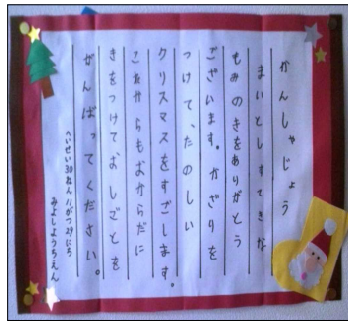 かんしゃじょう
まいとしすてきな
もみのきをありがとう
ございます。かざりを
つけて、たのしい
クリスマスをすごします。
これからもおからだに
きをつけておしごとを
がんばってください。
へいせい30ねん11がつ29にち
みよしようちえん